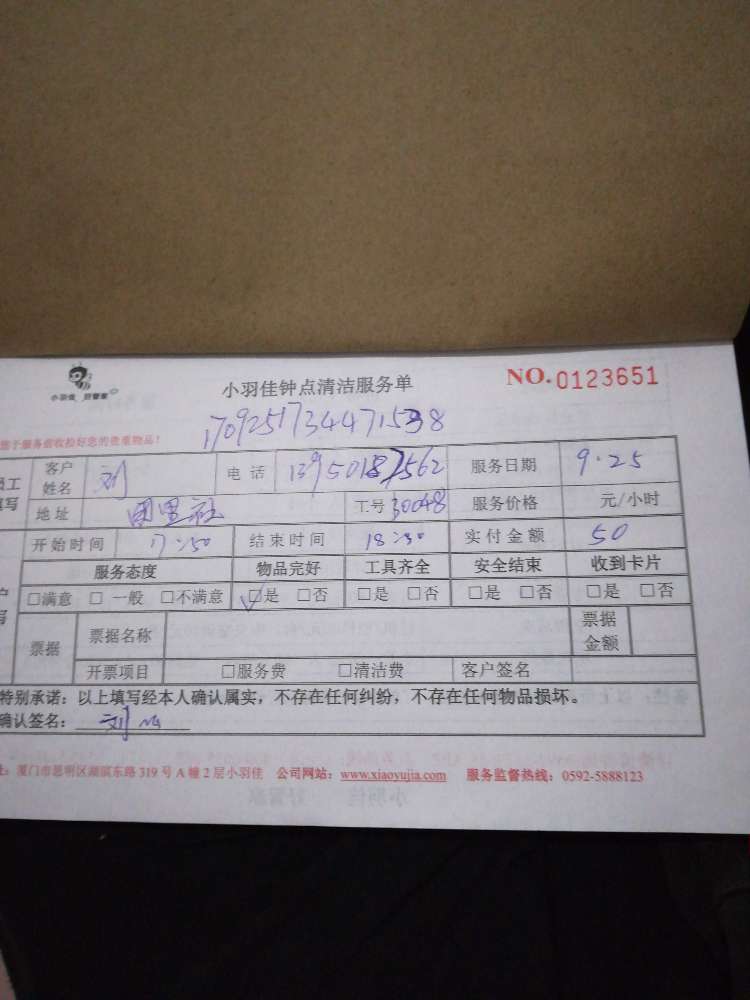 小羽佳 好管家
小羽佳钟点清洁服务单
NO.0123651
1709251734471538
您于服务前收捡好您的贵重物品!
员工 客户姓名 刘 电话 13950187562 服务日期 9.25
填写 地址 工号 30048 服务价格 元/小时
开始时间 17:50 结束时间 18:30 实付金额 50
服务态度 物品完好 工具齐全 安全结束 收到卡片
□满意 □一般 □不满意 ☑是 □否 □是 □否 □是 □否 □是 □否
票据 票据名称 票据金额
开票项目 □服务费 □清洁费 客户签名
特别承诺:以上填写经本人确认属实,不存在任何纠纷,不存在任何物品损坏。
确认签名: 刘
址:厦门市思明区湖滨东路 319 号 A 幢 2 层小羽佳 公司网站:www.xiaoyujia.com 服务监督热线:0592-5888123